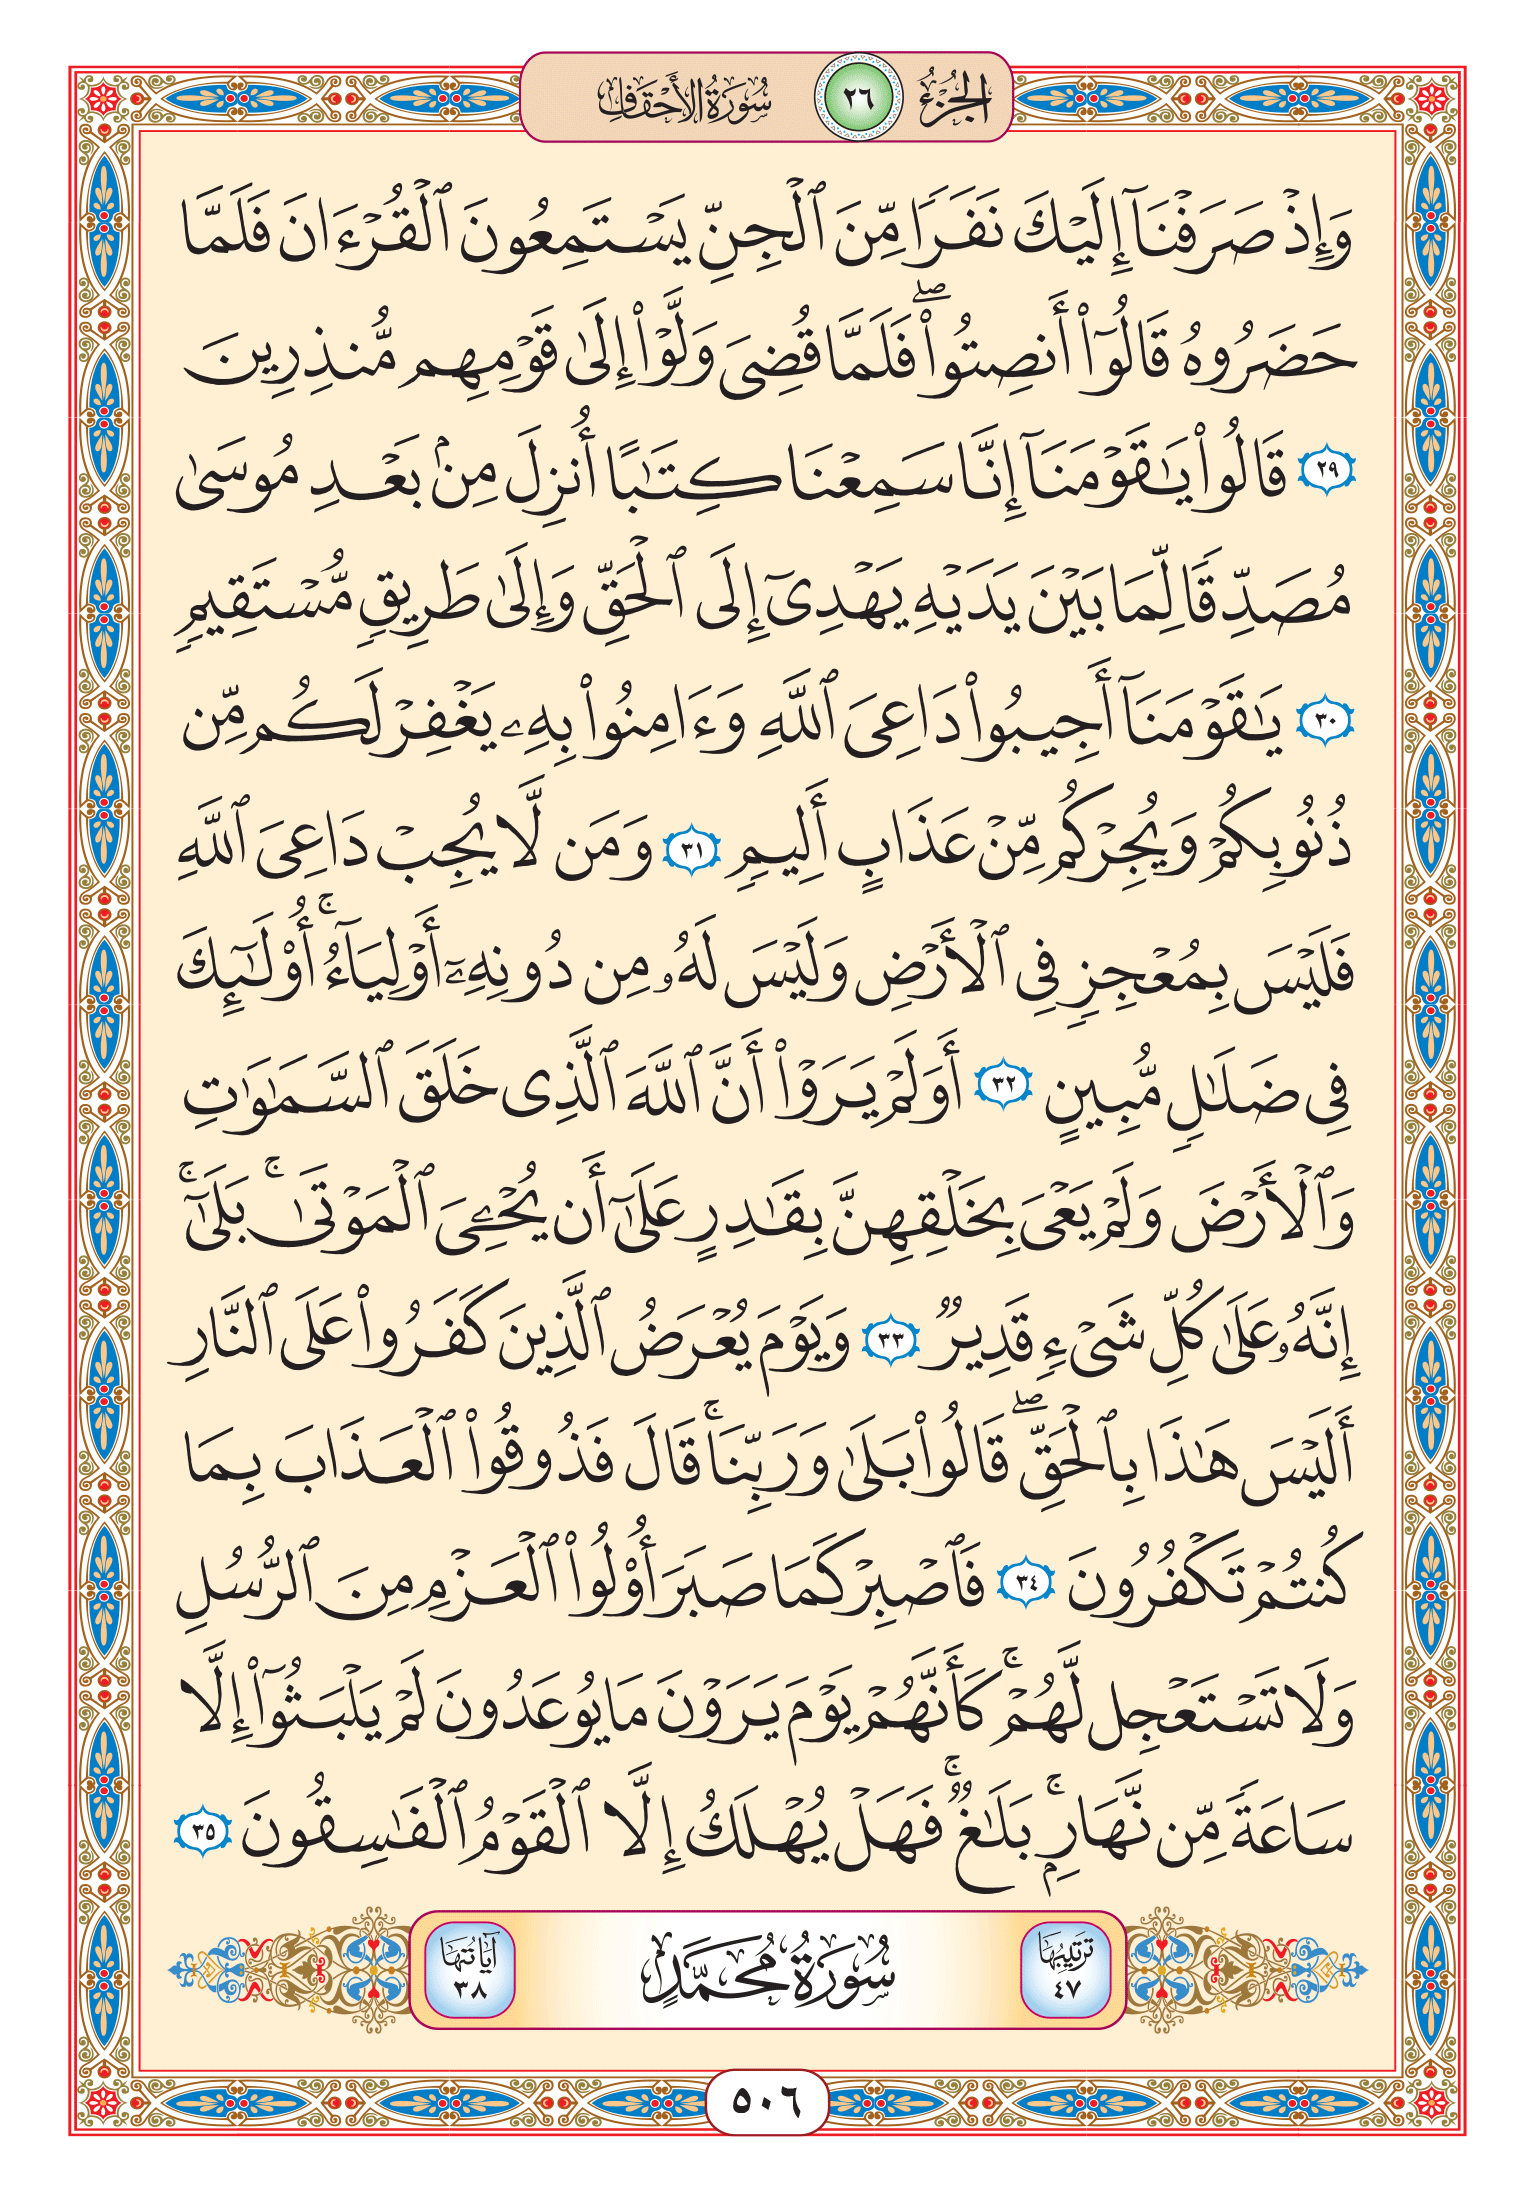 الجزء ٢٦ سورة الأحقاف
وَإِذۡ صَرَفۡنَآ إِلَيۡكَ نَفَرٗا مِّنَ ٱلۡجِنِّ يَسۡتَمِعُونَ ٱلۡقُرۡءَانَ فَلَمَّا
حَضَرُوهُ قَالُوٓاْ أَنصِتُواْۖ فَلَمَّا قُضِيَ وَلَّوۡاْ إِلَىٰ قَوۡمِهِم مُّنذِرِينَ
٢٩ قَالُواْ يَٰقَوۡمَنَآ إِنَّا سَمِعۡنَا كِتَٰبًا أُنزِلَ مِنۢ بَعۡدِ مُوسَىٰ
مُصَدِّقٗا لِّمَا بَيۡنَ يَدَيۡهِ يَهۡدِيٓ إِلَى ٱلۡحَقِّ وَإِلَىٰ طَرِيقٖ مُّسۡتَقِيمٖ
٣٠ يَٰقَوۡمَنَآ أَجِيبُواْ دَاعِيَ ٱللَّهِ وَءَامِنُواْ بِهِۦ يَغۡفِرۡ لَكُم مِّن
ذُنُوبِكُمۡ وَيُجِرۡكُم مِّنۡ عَذَابٍ أَلِيمٖ ٣١ وَمَن لَّا يُجِبۡ دَاعِيَ ٱللَّهِ
فَلَيۡسَ بِمُعۡجِزٖ فِي ٱلۡأَرۡضِ وَلَيۡسَ لَهُۥ مِن دُونِهِۦٓ أَوۡلِيَآءُۚ أُوْلَٰٓئِكَ
فِي ضَلَٰلٖ مُّبِينٍ ٣٢ أَوَلَمۡ يَرَوۡاْ أَنَّ ٱللَّهَ ٱلَّذِي خَلَقَ ٱلسَّمَٰوَٰتِ
وَٱلۡأَرۡضَ وَلَمۡ يَعۡيَ بِخَلۡقِهِنَّ بِقَٰدِرٍ عَلَىٰٓ أَن يُحۡـِۧيَ ٱلۡمَوۡتَىٰۚ بَلَىٰٓۚ
إِنَّهُۥ عَلَىٰ كُلِّ شَيۡءٖ قَدِيرٞ ٣٣ وَيَوۡمَ يُعۡرَضُ ٱلَّذِينَ كَفَرُواْ عَلَى ٱلنَّارِ
أَلَيۡسَ هَٰذَا بِٱلۡحَقِّۖ قَالُواْ بَلَىٰ وَرَبِّنَاۚ قَالَ فَذُوقُواْ ٱلۡعَذَابَ بِمَا
كُنتُمۡ تَكۡفُرُونَ ٣٤ فَٱصۡبِرۡ كَمَا صَبَرَ أُوْلُواْ ٱلۡعَزۡمِ مِنَ ٱلرُّسُلِ
وَلَا تَسۡتَعۡجِل لَّهُمۡۚ كَأَنَّهُمۡ يَوۡمَ يَرَوۡنَ مَا يُوعَدُونَ لَمۡ يَلۡبَثُوٓاْ إِلَّا
سَاعَةٗ مِّن نَّهَارِۭۚ بَلَٰغٞۚ فَهَلۡ يُهۡلَكُ إِلَّا ٱلۡقَوۡمُ ٱلۡفَٰسِقُونَ ٣٥
ترتيبها ٤٧ سُورَةُ مُحَمَّدٍ آياتها ٣٨
٥٠٦